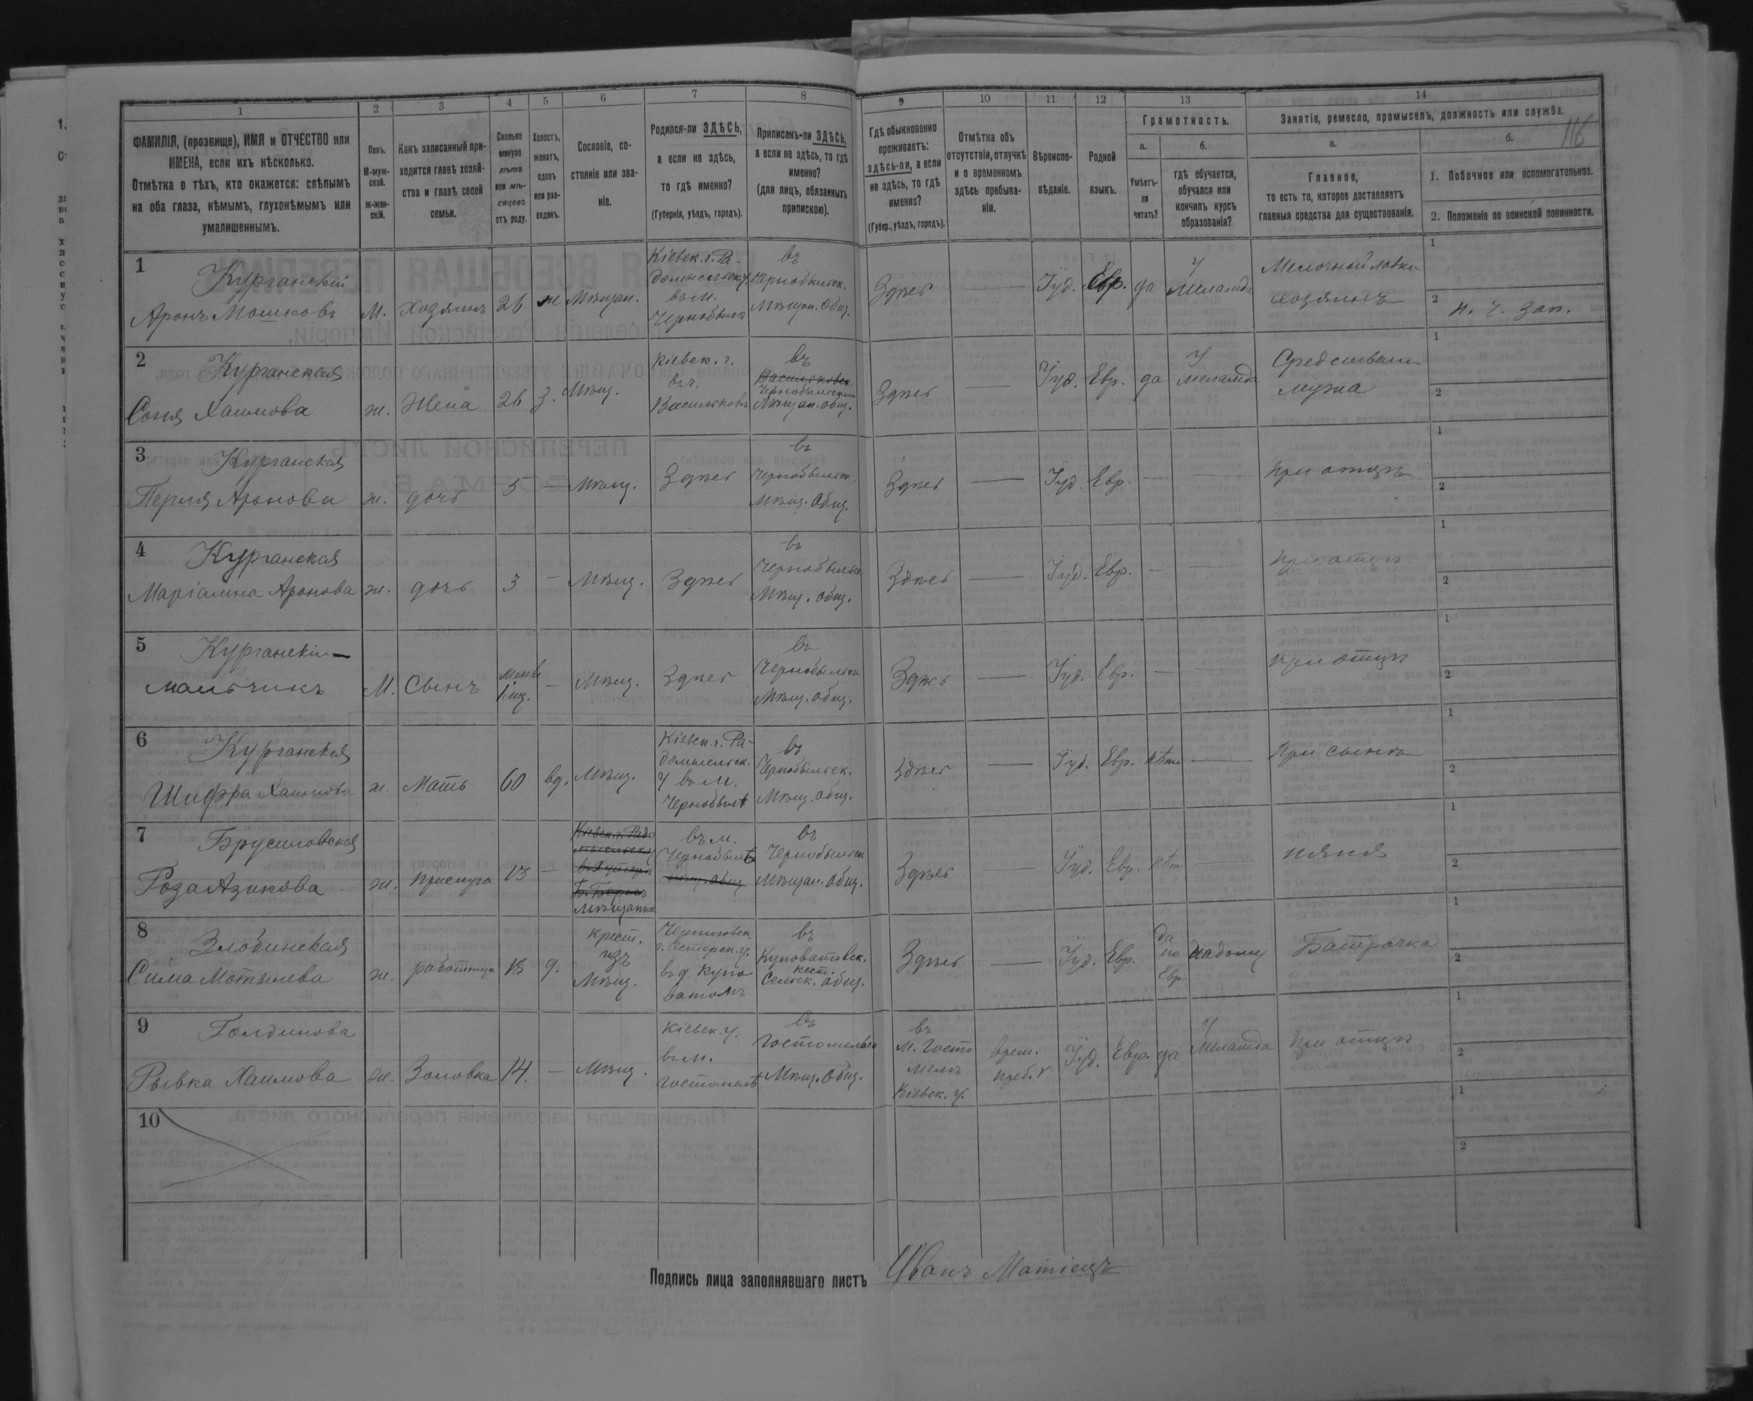 1
2
3
4
5
6
7
8
9
10
11
12
13
14
ФАМИЛІЯ, (прозвище), ИМЯ и ОТЧЕСТВО или
ИМЕНА, если ихъ нѣсколько.
Отмѣтка о тѣхъ, кто окажется: слѣпымъ
на оба глаза, нѣмымъ, глухонѣмымъ или
умалишеннымъ.
Полъ.
М-муж-
ской.
ж-жен-
скій.
Какъ записанный при-
ходится главѣ хозяй-
ства и главѣ своей
семьи.
Сколько
минуло
лѣтъ
или мѣ-
сяцевъ
отъ роду.
Холостъ,
женатъ,
вдовъ
или раз-
веденъ.
Сословіе, со-
стояніе или зва-
ніе.
Родился-ли ЗДѢСЬ,
а если не здѣсь,
то гдѣ именно?
(Губернія, уѣздъ, городъ).
Приписанъ-ли ЗДѢСЬ,
а если не здѣсь, то гдѣ
именно?
(для лицъ, обязанныхъ
припискою).
Гдѣ обыкновенно
проживаетъ:
здѣсь-ли, а если
не здѣсь, то гдѣ
именно?
(Губер., уѣздъ, городъ).
Отмѣтка объ
отсутствіи, отлучкѣ
и о временномъ
здѣсь пребыва-
ніи.
Вѣроиспо-
вѣданіе.
Родной
языкъ.
Грамотность.
а.
Умѣетъ-
ли
читать?
б.
гдѣ обучается,
обучался или
кончилъ курсъ
образованія?
Занятіе, ремесло, промыселъ, должность или служба.
116
а.
Главное,
то есть то, которое доставляетъ
главныя средства для существованія.
б.
1. Побочное или вспомогательное.
2. Положеніе по воинской повинности.
1 Курганскій
Аронъ Мошковъ М. Хозяинъ 26 ж Мѣщан. Кіевск. г. Ра-
домысльск. у.
въ м.
Чернобылѣ
въ
Чернобыльск.
Мѣщан. Общ.
Здѣсь Іуд. Евр. да у
Меламда
Мелочной лавки
хозяинъ
1
2 н. ч. зап.
2 Курганская
Соня Хаимова ж. Жена 26 з. Мѣщ. Кіевск. г.
въ г.
Васильковѣ
въ
Васильковск.
Чернобыльском
Мѣщан. общ.
Здѣсь — Іуд. Евр. да у
меламда
Средствами
мужа
1
2
3 Курганская
Перля Аронова ж. дочь 5 — Мѣщ. Здѣсь въ
Чернобыльск.
Мѣщ. Общ.
Здѣсь — Іуд. Евр. — — При отцѣ
1
2
4 Курганская
Маріамна Аронова ж. дочь 3 — Мѣщ. Здѣсь въ
Чернобыльск.
Мѣщ. общ.
Здѣсь — Іуд. Евр. — При отцѣ
1
2
5 Курганскій —
мальчикъ М. Сынъ менѣе
1 мц.
— Мѣщ. Здѣсь въ
Чернобыльск.
Мѣщ. общ.
Здѣсь — Іуд. Евр. — — При отцѣ
1
2
6 Курганская
Шифра Хаимова ж. Мать 60 вд. Мѣщ. Кіевск. г. Ра-
домысльск.
у въ м.
Чернобылѣ
въ
Чернобыльск.
Мѣщ. общ.
Здѣсь — Іуд. Евр. нѣтъ — При сынѣ
1
2
7 Брусиловская
Роза Азикова ж. прислуга 13 — Мѣщанка
въ м.
Чернобылѣ
мѣщ. общ
въ
Чернобыльск.
Мѣщан. Общ.
Здѣсь — Іуд. Евр. нѣтъ — няня
1
2
8 Злобинская
Сима Мотьлева ж. работница 18 д. крест.
изъ
Мѣщ.
Черниговск.
г. Остерск. у.
въ д. Купо
ватомъ
въ
Куповатовск.
Сельск. общ.
Здѣсь — Іуд. Евр. да
по
Евр.
надому Батрачка
1
2
9 Голдинова
Рывка Хаимова ж. Золовка 14. — Мѣщ. Кіевск. у.
въ м.
Гостомлѣ
въ
Гостомельск.
Мѣщ. Общ.
въ
м. Госто
мелѣ
Кіевск. у.
врем.
преб. Іуд. Евр. да у
Меламда При отцѣ
1
2
10
1
2
Подпись лица заполнявшаго листъ Иванъ Матіецъ